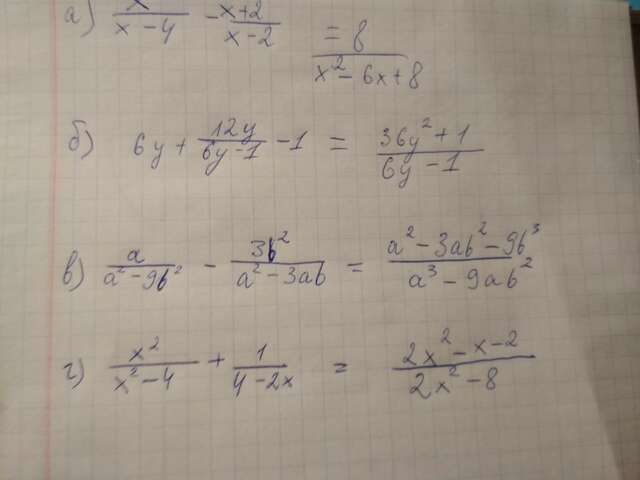 а) x/(x-4) - (x+2)/(x-2) = 8/(x²-6x+8)
б) 6y + 12y/(6y-1) - 1 = (36y²+1)/(6y-1)
в) a/(a²-9b²) - 3b²/(a²-3ab) = (a²-3ab²-9b³)/(a³-9ab²)
г) x²/(x²-4) + 1/(4-2x) = (2x²-x-2)/(2x²-8)